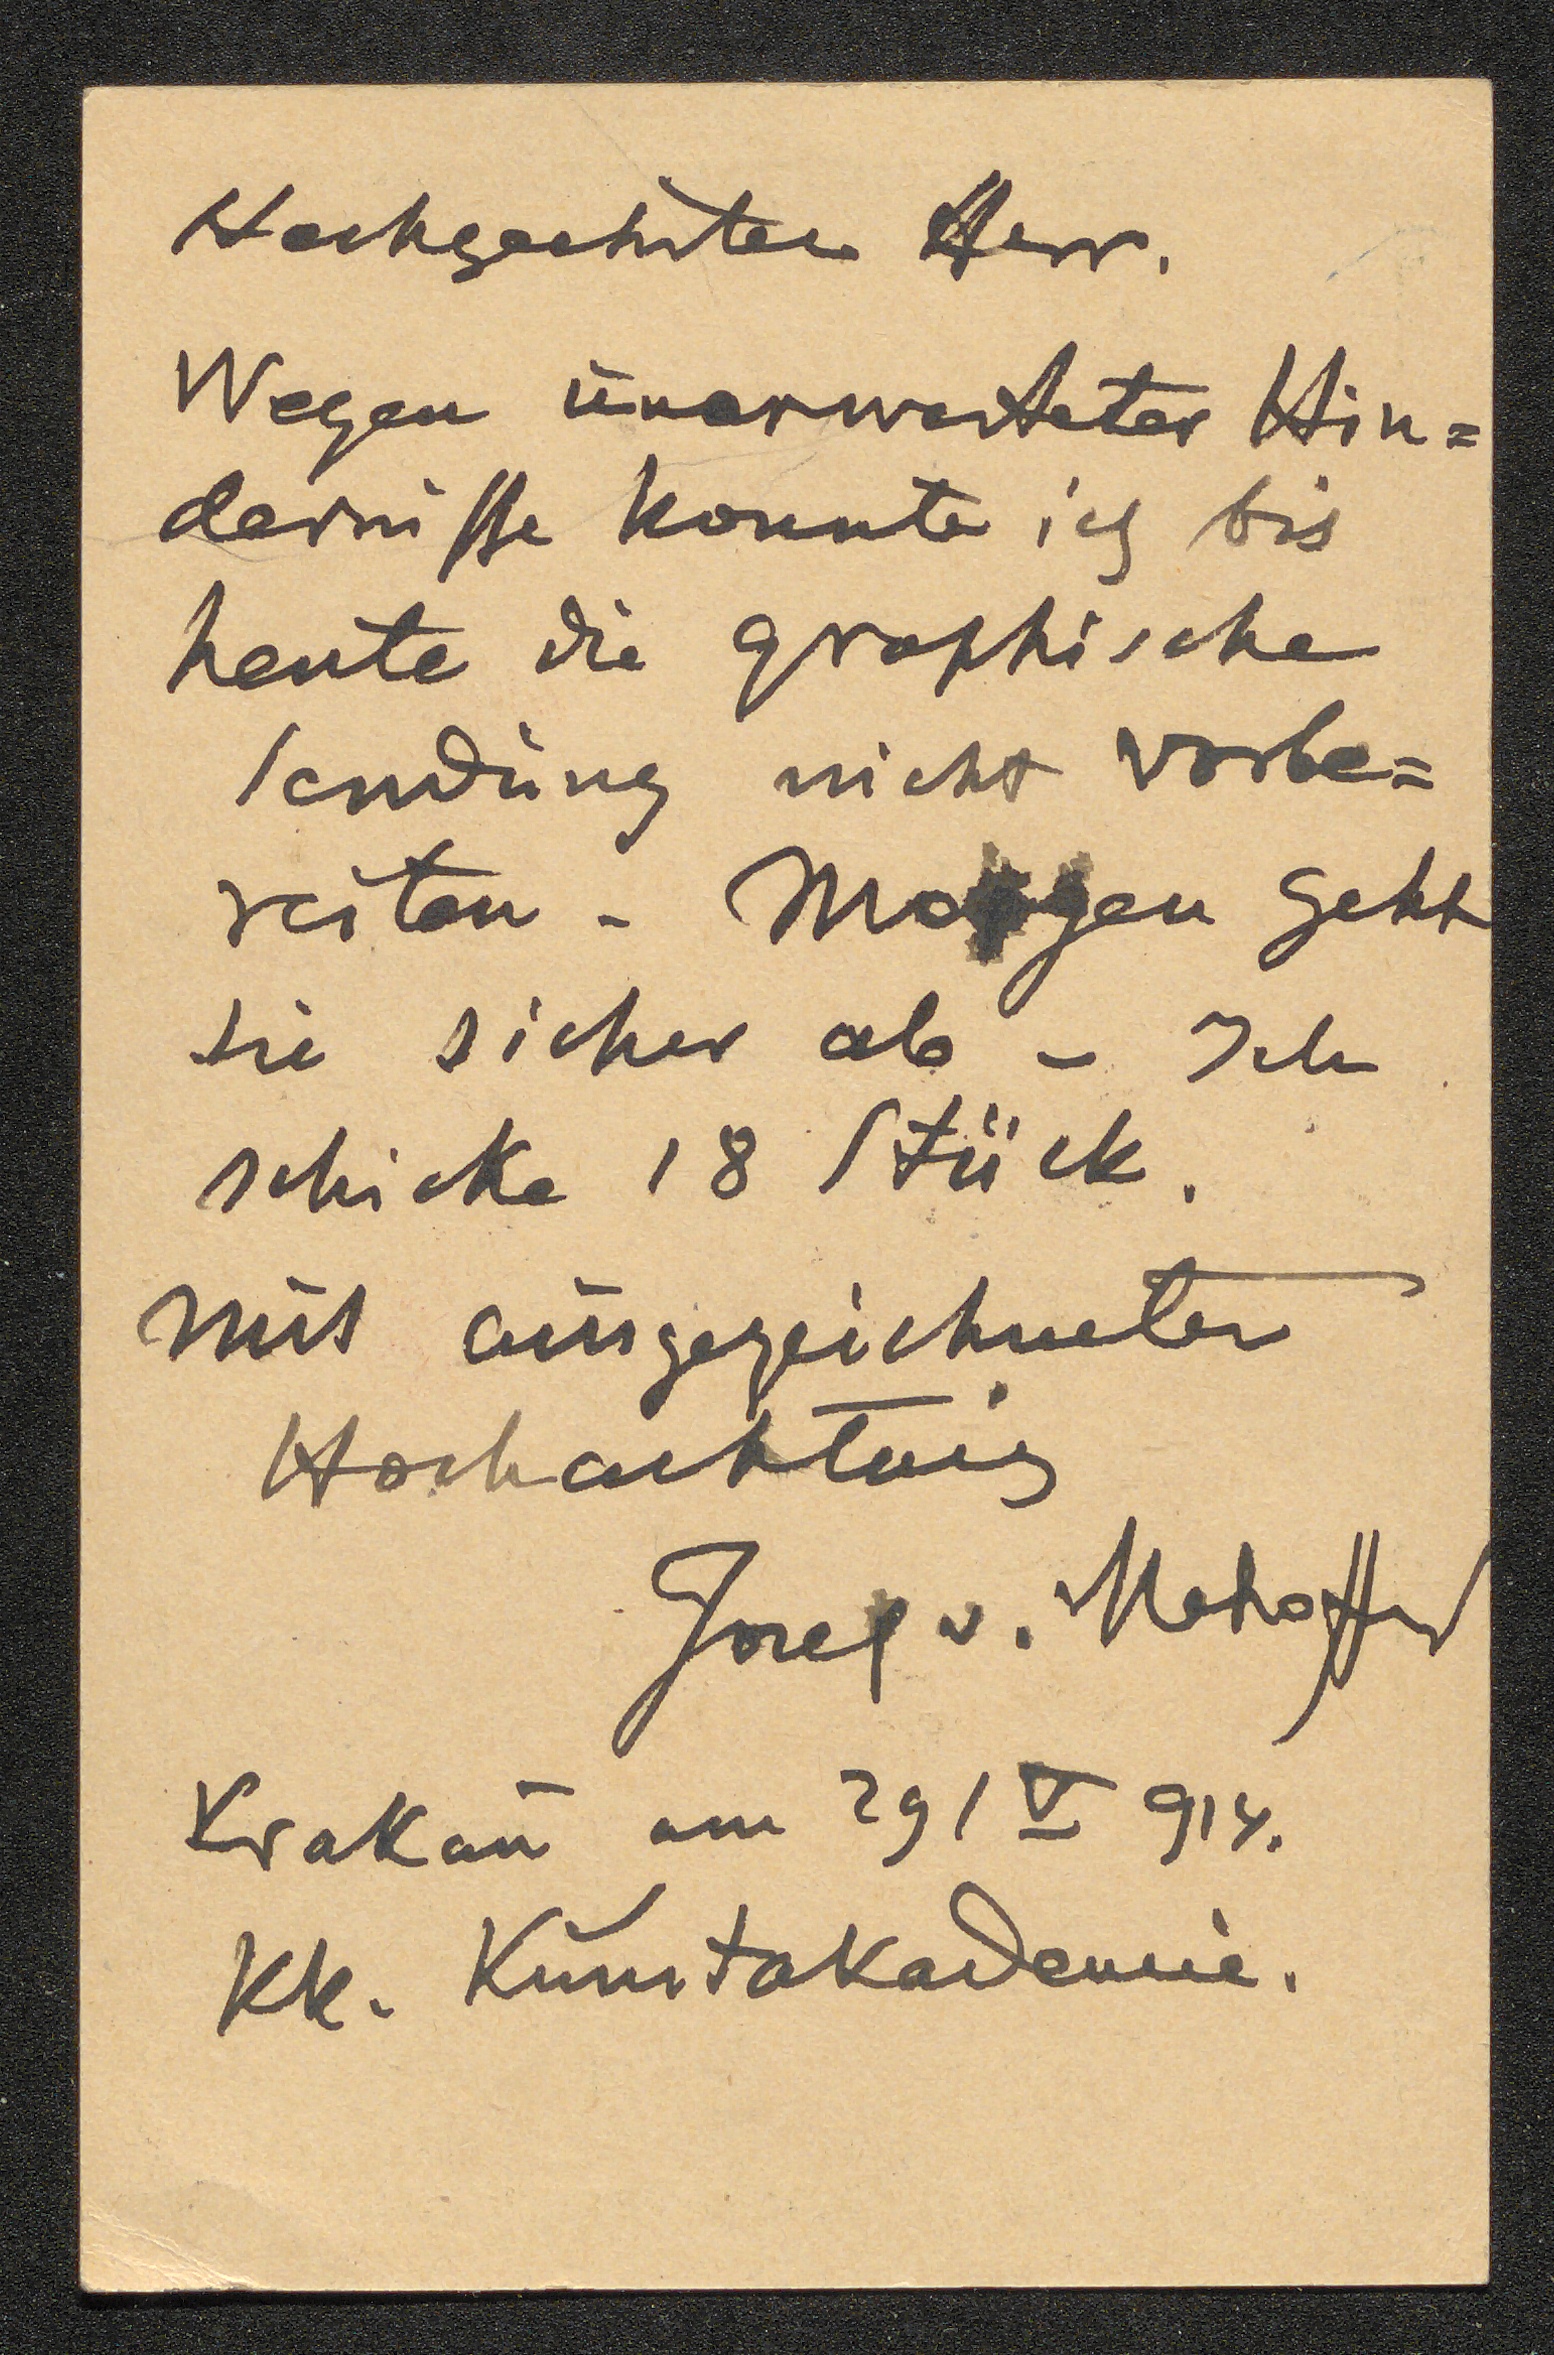 Hochgeehrter Herr.
Wegen unerwarteter Hin=
dernisse konnte ich bis
heute die graphische
Sendung nicht vorbe=
reiten - Morgen geht
sie sicher ab - Ich
schicke 18 Stück.
Mit ausgezeichneter
Hochachtung
Josef v. Mehoffer
Krakau am 29/V 914.
KK. Kunstakademie.